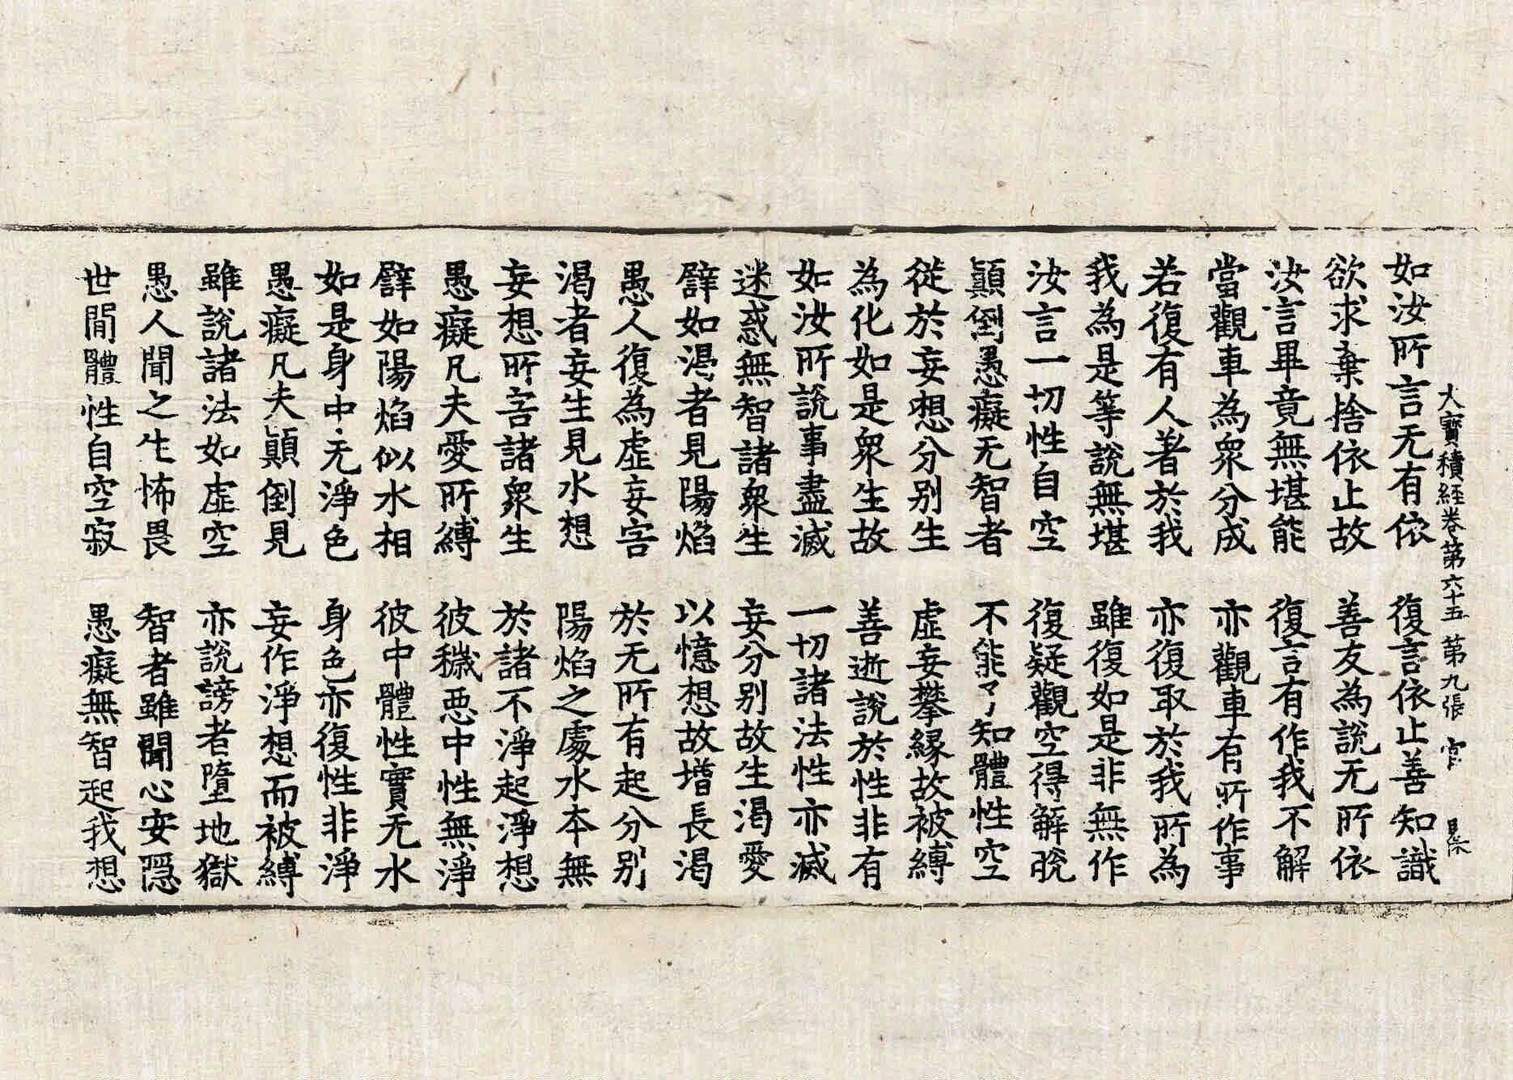 大寶積経卷第六十五 第九張 官
如汝所言无有依 復言依止善知識
欲求棄捨依止故 善友為說无所依
汝言畢竟無堪能 復言有作我不解
當觀車為衆分成 亦觀車有所作事
若復有人著於我 亦復取於我所為
我為是等說無堪 雖復如是非無作
汝言一切性自空 復疑觀空得解脫
顛倒愚癡无智者 不能了知體性空
從於妄想分別生 虛妄攀緣故被縛
為化如是衆生故 善逝說於性非有
如汝所說事盡滅 一切諸法性亦滅
迷惑無智諸衆生 妄分別故生渴愛
譬如渴者見陽焰 以憶想故增長渴
愚人復為虛妄害 於无所有起分別
渴者妄生見水想 陽焰之處水本無
妄想所害諸衆生 於諸不淨起淨想
愚癡凡夫愛所縛 彼穢惡中性無淨
譬如陽焰似水相 彼中體性實无水
如是身中无淨色 身色亦復性非淨
愚癡凡夫顛倒見 妄作淨想而被縛
雖說諸法如虛空 亦說謗者墮地獄
愚人聞之生怖畏 智者雖聞心安隱
世間體性自空寂 愚癡無智起我想